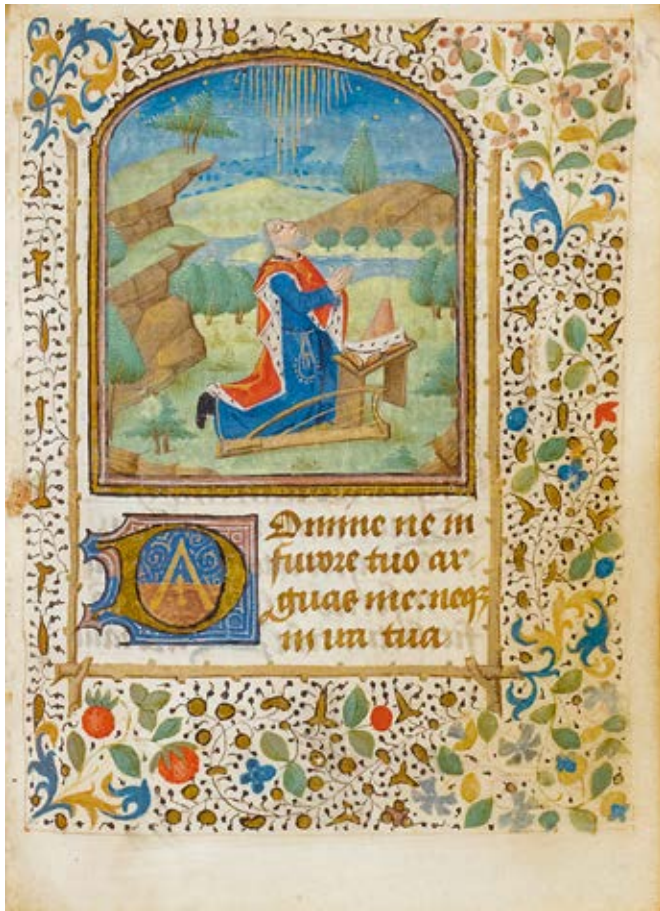 Domine ne in
furore tuo ar
guas me: neqꝫ
in ira tua